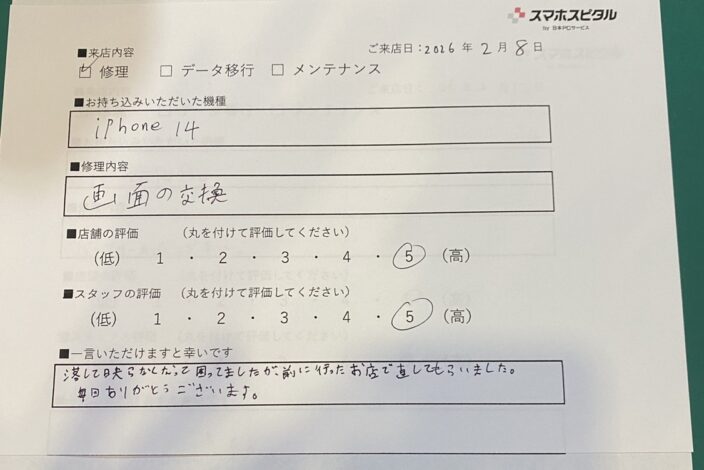 スマホスピタル
by 日本PCサービス
■来店内容
ご来店日：2026年 2月 8日
☑ 修理 □ データ移行 □ メンテナンス
■お持ち込みいただいた機種
iPhone 14
■修理内容
画面の交換
■店舗の評価 （丸を付けて評価してください）
（低） 1 ・ 2 ・ 3 ・ 4 ・ 5 （高）
■スタッフの評価 （丸を付けて評価してください）
（低） 1 ・ 2 ・ 3 ・ 4 ・ 5 （高）
■一言いただけますと幸いです
落して映らなくなって困ってましたが前に行ったお店で直してもらいました。
毎回ありがとうございます。